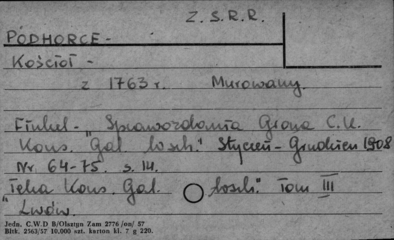 Z. S. R. R.
PODHORCE -
Kościoł -
z 1763 r. Murowany.
Finkel - Sprawozdania Grona C. K.
Kons. "Gal. wsch." Styczeń - Grudzień 1908
Nr. 64-75. s. 14.
Teka Kons. Gal. wsch." Tom III
" Lwów.
Jedn. C.W.D B/Olsztyn Zam 2776/on/ 57
Bltk. 2563/57 10.000 szt. karton kl. 7 g 220.